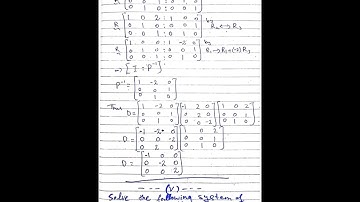 0 0 1 : 0 1 0
0 1 0 : 0 0 1
R [1 0 2 : 1 0 0
0 1 0 : 0 0 1
0 0 1 : 0 1 0] by R₂ ↔ R₃
R [1 0 0 : 1 -2 0
0 1 0 : 0 0 1
0 0 1 : 0 1 0] by R₁ → R₁+(-2)R₃
→ [I : P⁻¹]
P⁻¹ = [1 -2 0
0 0 1
0 1 0]
Thus D = [1 -2 0
0 0 1
0 1 0] [-1 2 0
0 2 0
0 0 -2] [1 0 2
0 0 1
0 1 0]
D = [-1 -2 0
0 0 -2
0 2 0] [1 0 2
0 0 1
0 1 0]
D = [-1 0 0
0 -2 0
0 0 2]
(V)
Solve the following system of